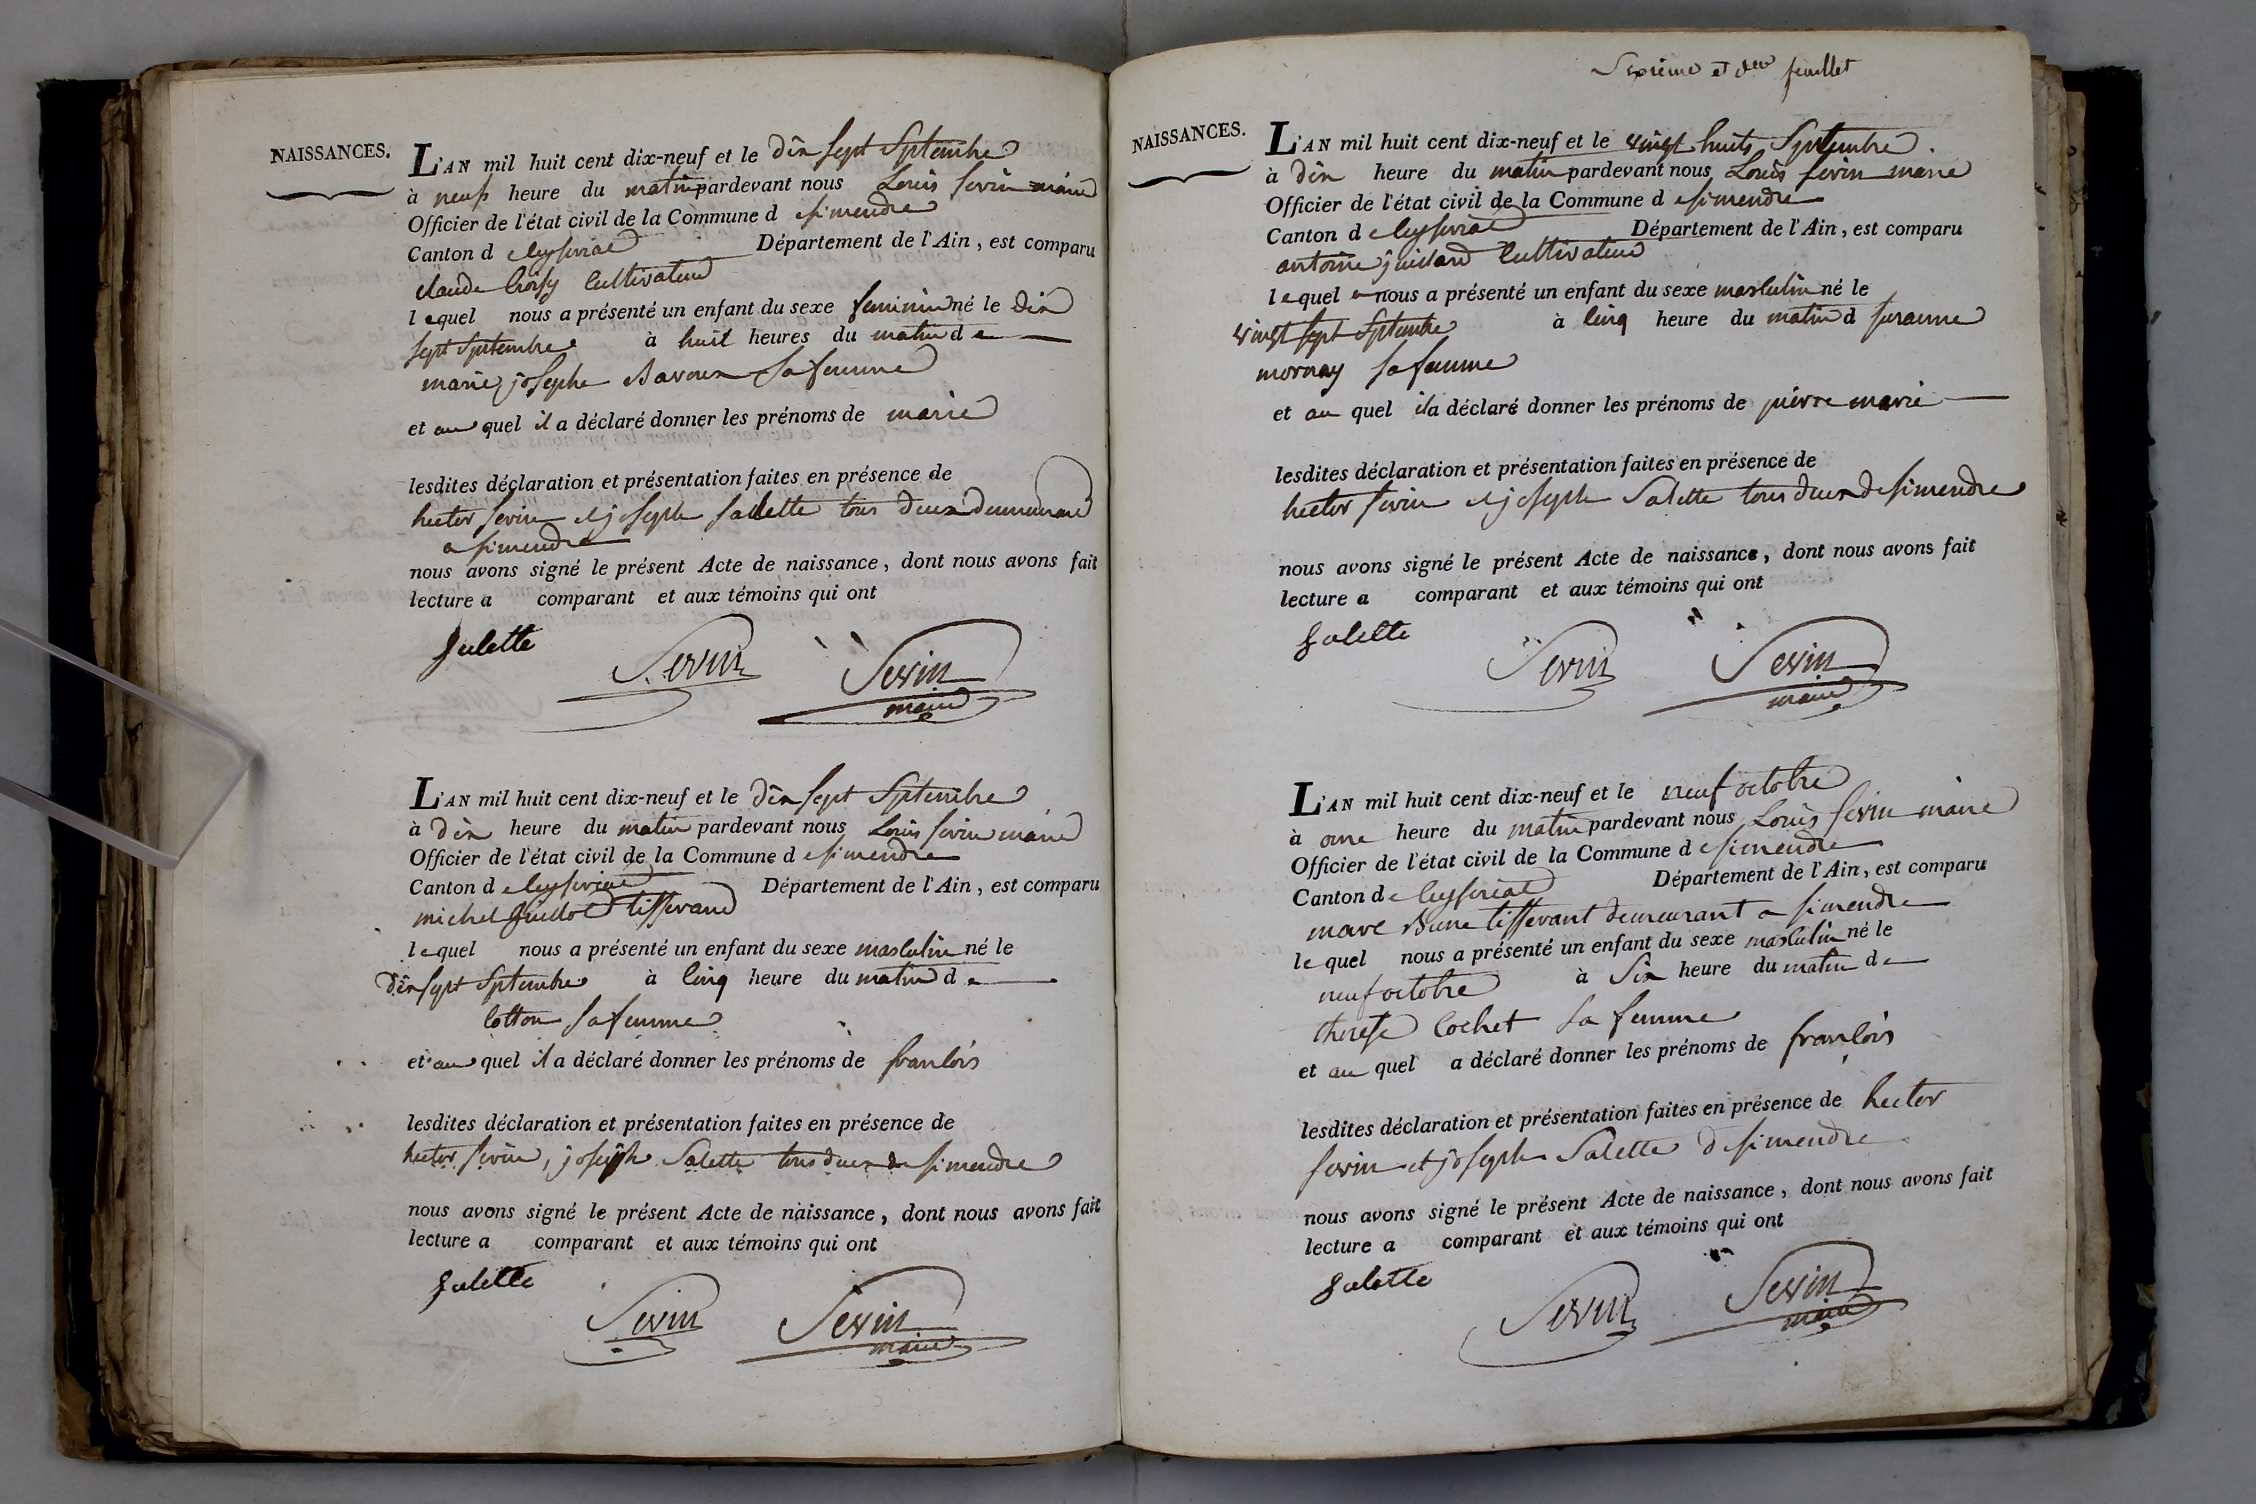 NAISSANCES.
L'AN mil huit cent dix-neuf et le dix sept Septembre
à neuf heure du matin pardevant nous Louis sevin maire
Officier de l'état civil de la Commune d e simendre
Canton d e Ceyseriat Département de l'Ain, est comparu
claude Cultivateur
l equel nous a présenté un enfant du sexe feminin né le dix
sept Septembre à huit heures du matin d e
marie josephe Bavoux sa femme
et au quel il a déclaré donner les prénoms de marie
lesdites déclaration et présentation faites en présence de
hector sevin et joseph sallette tous deux demeurant
a simendre
nous avons signé le présent Acte de naissance, dont nous avons fait
lecture a comparant et aux témoins qui ont
Salette Sevin Sevin
maire
L'AN mil huit cent dix-neuf et le dix sept Septembre
à dix heure du matin pardevant nous Louis sevin maire
Officier de l'état civil de la Commune d e simendre
Canton d e Ceyseriat Département de l'Ain, est comparu
michel Guillot tisserand
l equel nous a présenté un enfant du sexe masculin né le
dix sept Septembre à cinq heure du matin d e
Cotton sa femme
et au quel il a déclaré donner les prénoms de francois
lesdites déclaration et présentation faites en présence de
hector sevin, joseph Salette tous deux de simendre
nous avons signé le présent Acte de naissance, dont nous avons fait
lecture a comparant et aux témoins qui ont
Salette Sevin Sevin
maire
Sixieme et der feuillet
NAISSANCES.
L'AN mil huit cent dix-neuf et le vingt huits Septembre
à dix heure du matin pardevant nous Louis sevin maire
Officier de l'état civil de la Commune d e simendre
Canton d e Ceyseriat Département de l'Ain, est comparu
antoine juillard Cultivateur
l e quel nous a présenté un enfant du sexe masculin né le
vingt sept Septembre à cinq heure du matin d suzanne
mornay sa femme
et au quel il a déclaré donner les prénoms de pierre marie
lesdites déclaration et présentation faites en présence de
hector sevin et joseph Salette tous deux de simendre
nous avons signé le présent Acte de naissance, dont nous avons fait
lecture a comparant et aux témoins qui ont
Salette Sevin Sevin
maire
L'AN mil huit cent dix-neuf et le neuf octobre
à onze heure du matin pardevant nous Louis sevin maire
Officier de l'état civil de la Commune d e simendre
Canton d e Ceyseriat Département de l'Ain, est comparu
marc Bune tisserant demeurant a simendre
l e quel nous a présenté un enfant du sexe masculin né le
neuf octobre à Six heure du matin d e
therese Cochet sa femme
et au quel a déclaré donner les prénoms de francois
lesdites déclaration et présentation faites en présence de hector
sevin et joseph Salette de simendre
nous avons signé le présent Acte de naissance, dont nous avons fait
lecture a comparant et aux témoins qui ont
Salette Sevin Sevin
maire